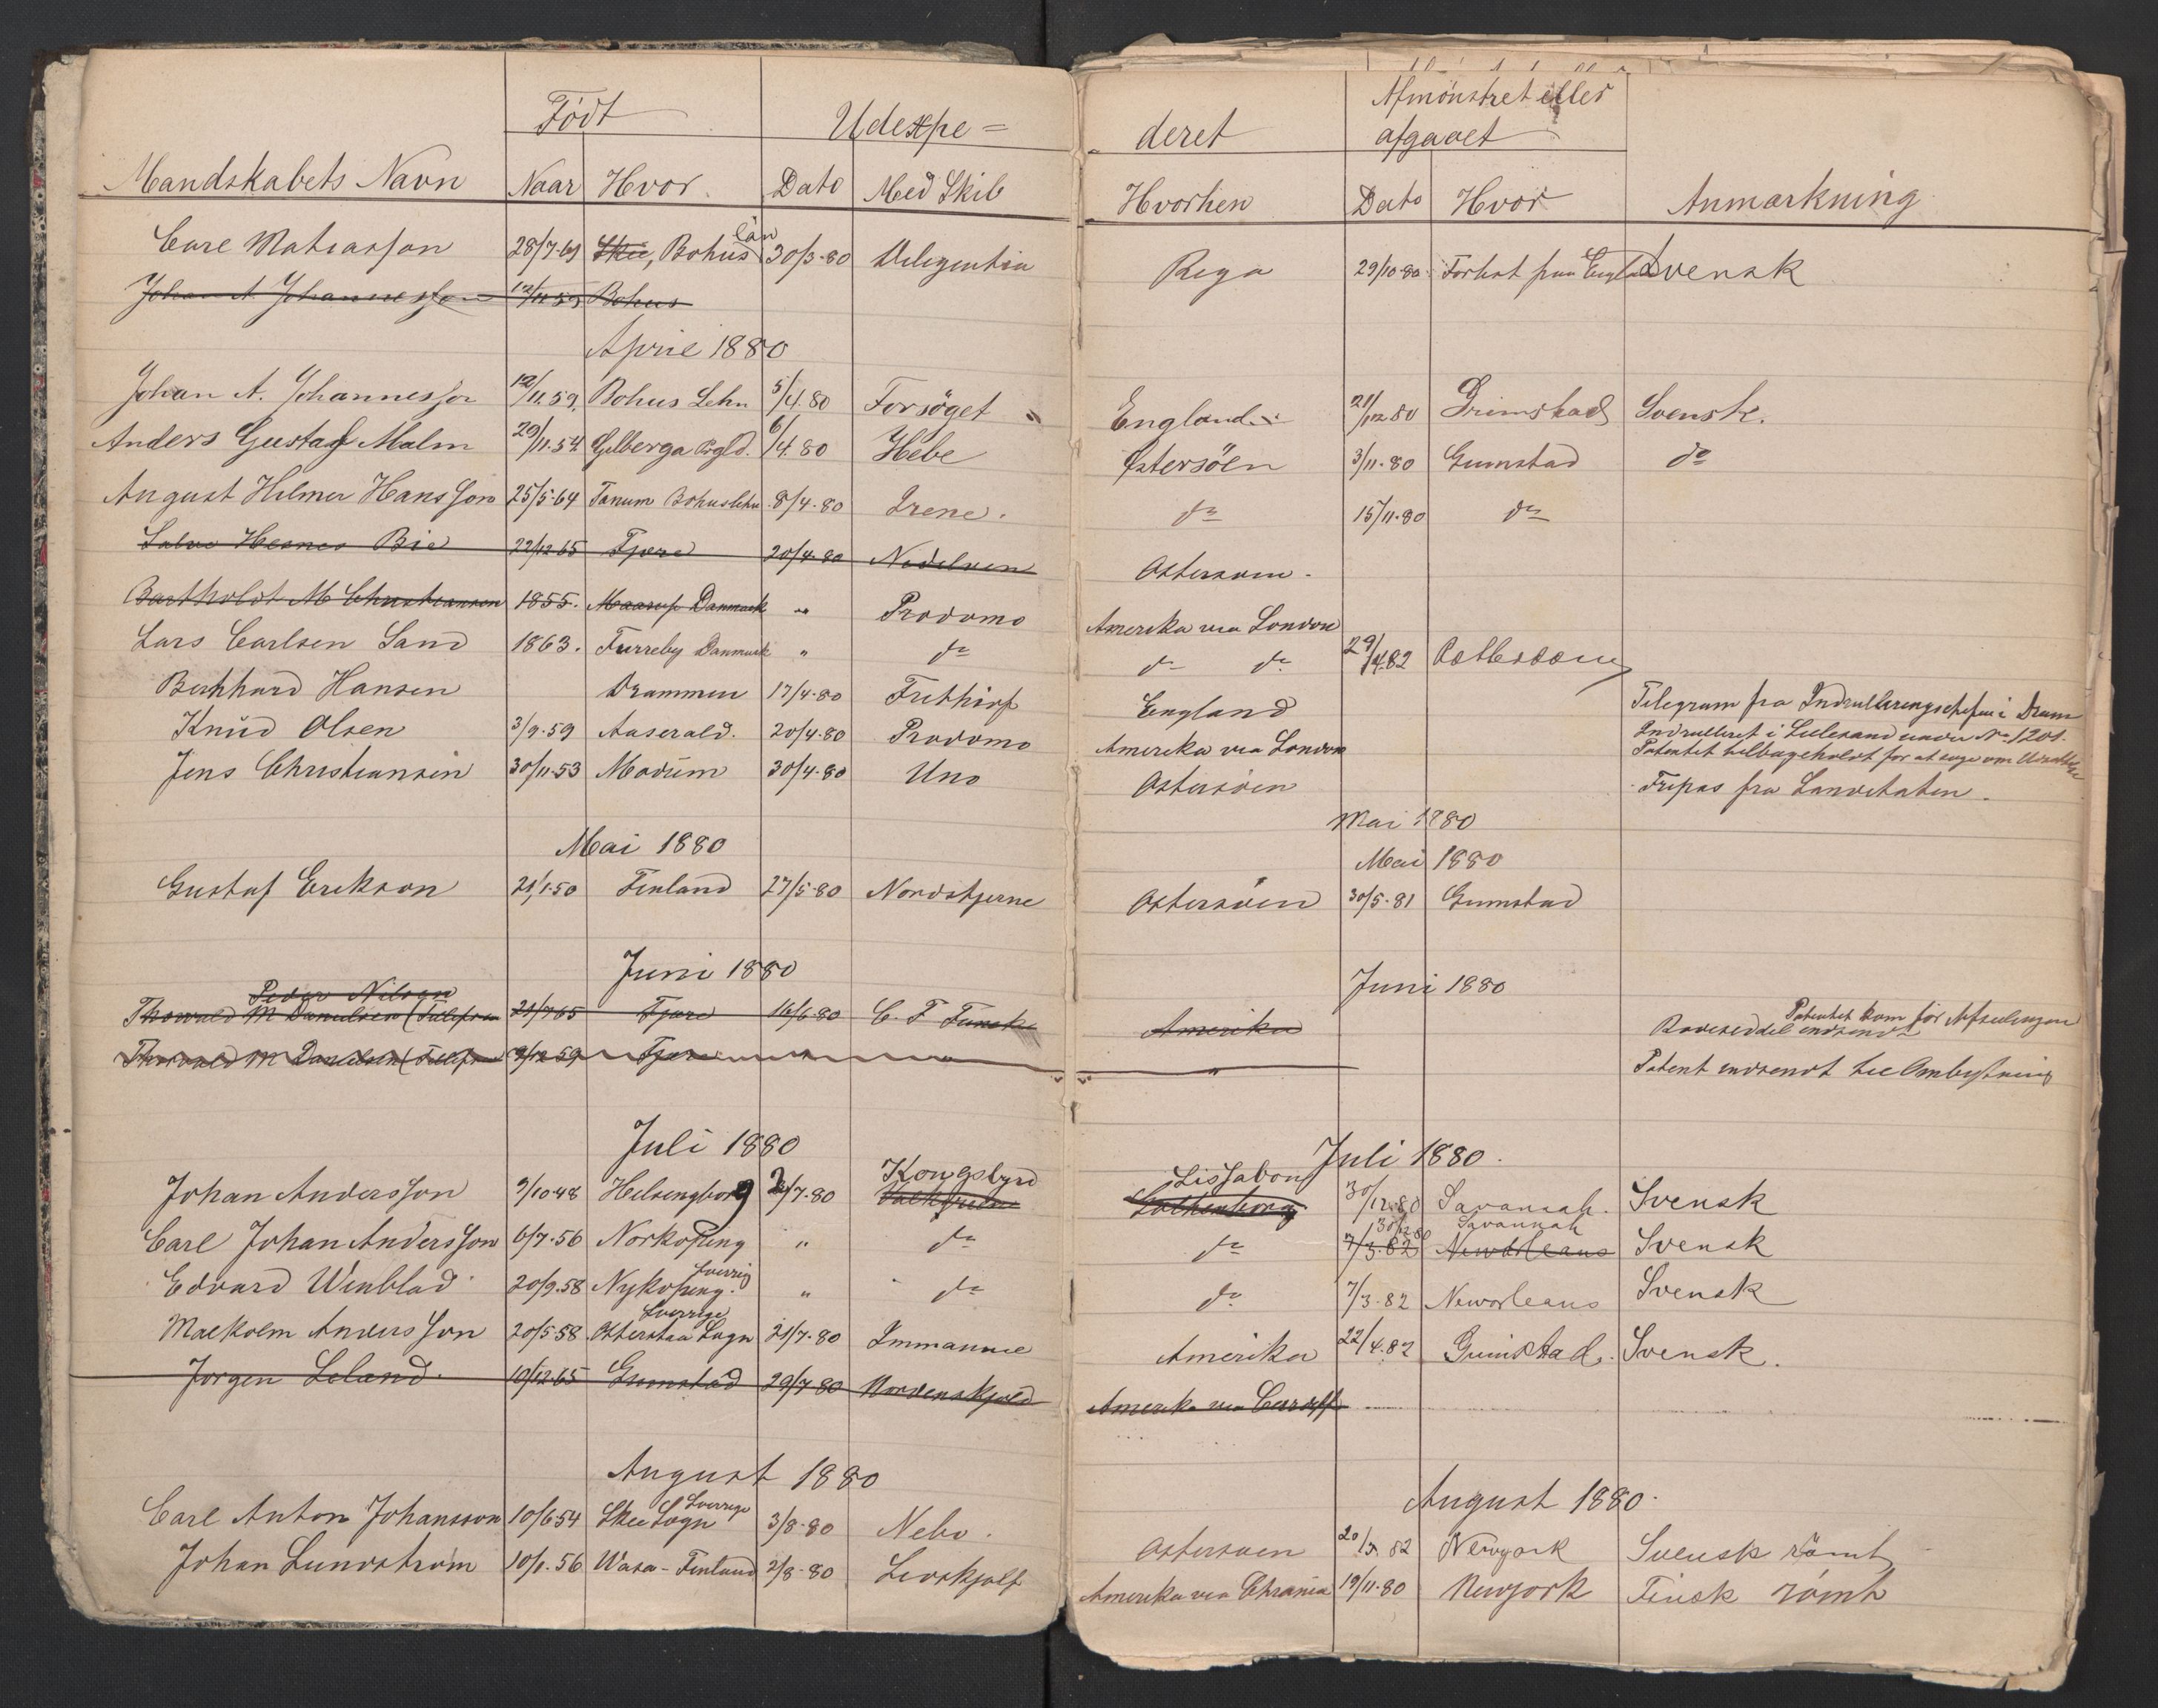 Født Udexpe= deret Afmönstret eller afgaaet
Mandskabets Navn Naar Hvor. Dato Med Skib Hvorhen Dato Hvor Anmærkning
Carl Matiasson 28/7-61 Skee, Bohus län 30/3-80 Deligentia Riga 29/10-80 Forhst paa England Svensk
Johan A. Johannesson 12/11 59 Bohus
April 1880
Johan A. Johannesson 12/11.59. Bohus Lehn 5/4.80 Forsöget England 21/12 80 Grimstad Svensk.
Anders Gustaf Malm 29/11.54 Gilberga 6/4.80 Hebe Østersöen 3/11-80 Grimstad do
August Hilmer Hansson 25/5-64 Tanum Bohuslehn 8/4-80 Irene. do 15/11-80 do
Salve Hesnes Bie 22/12 65 Fjære 20/4-80 Nedelven Østersøen.
Bartholdt M Christiansen 1855. Maarup Danmark " Prodomo Amerika via London
Lars Carlsen Sand 1863. Furreby Danmark " do do do 29/4.82
Bernhard Hansen Drammen 17/4-80 Frithiof England Telegram fra Indrulleringschefen i Dram
Knud Olsen 3/9-59 Aaserald. 20/4-80 Prodomo Amerika via London Indrulleret i Lillesand under No 1201.
Patentet tilbageholdt for at søge om
Jens Christiansen 30/11-53 Modum 30/4-80 Uno Østersöen Fripas fra Landetaten.
Mai 1880
Mai 1880 Mai 1880
Gustaf Erikson 21/1-50 Finland 27/5-80 Nordstjerne Østersöen 30/5-81 Grimstad
Juni 1880 Juni 1880
Peder Nilsen
Thorvald M Danielsen (Tellefsen 21/7 65 Fjære 16/6-80 C. F Funcke Amerika Rodeseddel indsendt Patentet kom før Afseilingen
Thorvald M Danielsen (Tellefsen 9/12 59 Fjære " " Patent indsendt til Ombytning
Juli 1880 Juli 1880.
Kongsbyrd Lissabon
Johan Andersson 9/10-48 Helsengborg 2/7-80 Valkyrien Gothenborg 30/12-80 Savannah. Svensk
30/12 80 Savannah
Carl Johan Andersson 6/7-56 Norkøping " do do 7/3-82 New Orleans Svensk
Edvard Winblad 20/9.58 Nykøping. Sverrig " do do 7/3-82 Neworleans Svensk
Malkolm Andersson 20/5-58 Østerstaa Sogn Sverrige 21/7-80 Immanuel Amerika 22/4.82 Grimstad. Svensk.
Jørgen Leland. 10/12-65 Grimstad 29/7-80 Nordenskjold Amerika via Cardiff
August 1880 August 1880.
Carl Anton Johansson 10/6 54 Skee Sogn Sverrige 3/8-80 Nebo. Østersøen 20/3 82 Newyork Svensk römt
Johan Lundström 10/1.56 Wasa-Finland 2/8-80 Livskjolf Amerika via Chrania 19/11-80 Newyork Finsk römt